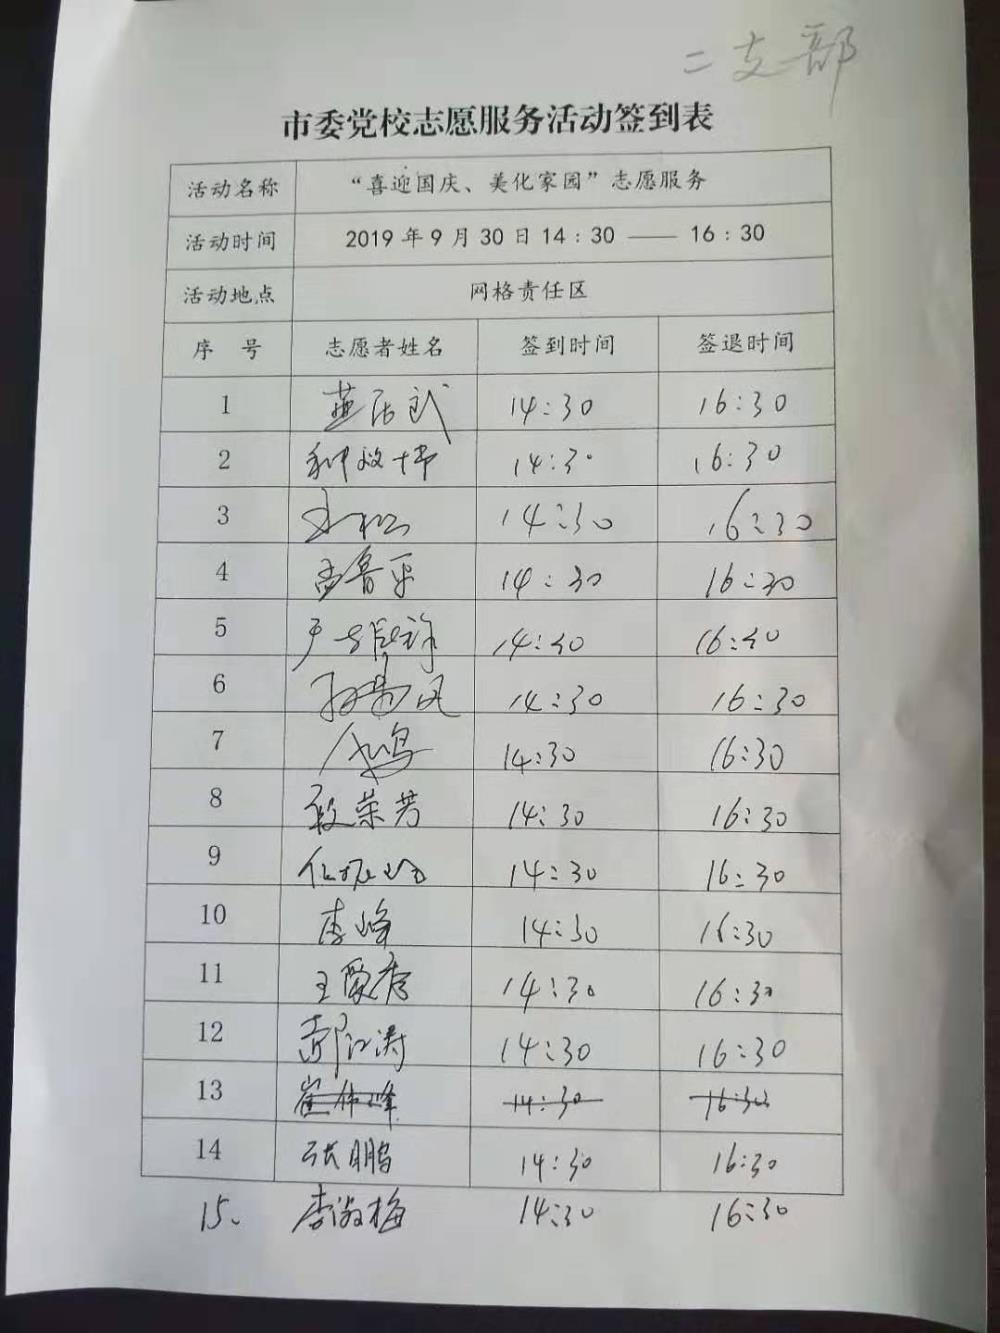 二支部
市委党校志愿服务活动签到表
活动名称 “喜迎国庆、美化家园”志愿服务
活动时间 2019年9月30日14:30 —— 16:30
活动地点 网格责任区
序 号 志愿者姓名 签到时间 签退时间
1 14:30 16:30
2 14:30 16:30
3 14:30 16:30
4 孟鲁平 14:30 16:30
5 14:30 16:30
6 14:30 16:30
7 14:30 16:30
8 荣芳 14:30 16:30
9 14:30 16:30
10 李峰 14:30 16:30
11 王爱秀 14:30 16:30
12 江涛 14:30 16:30
13 崔伟峰 14:30 16:30
14 张鹏 14:30 16:30
15. 李淑梅 14:30 16:30